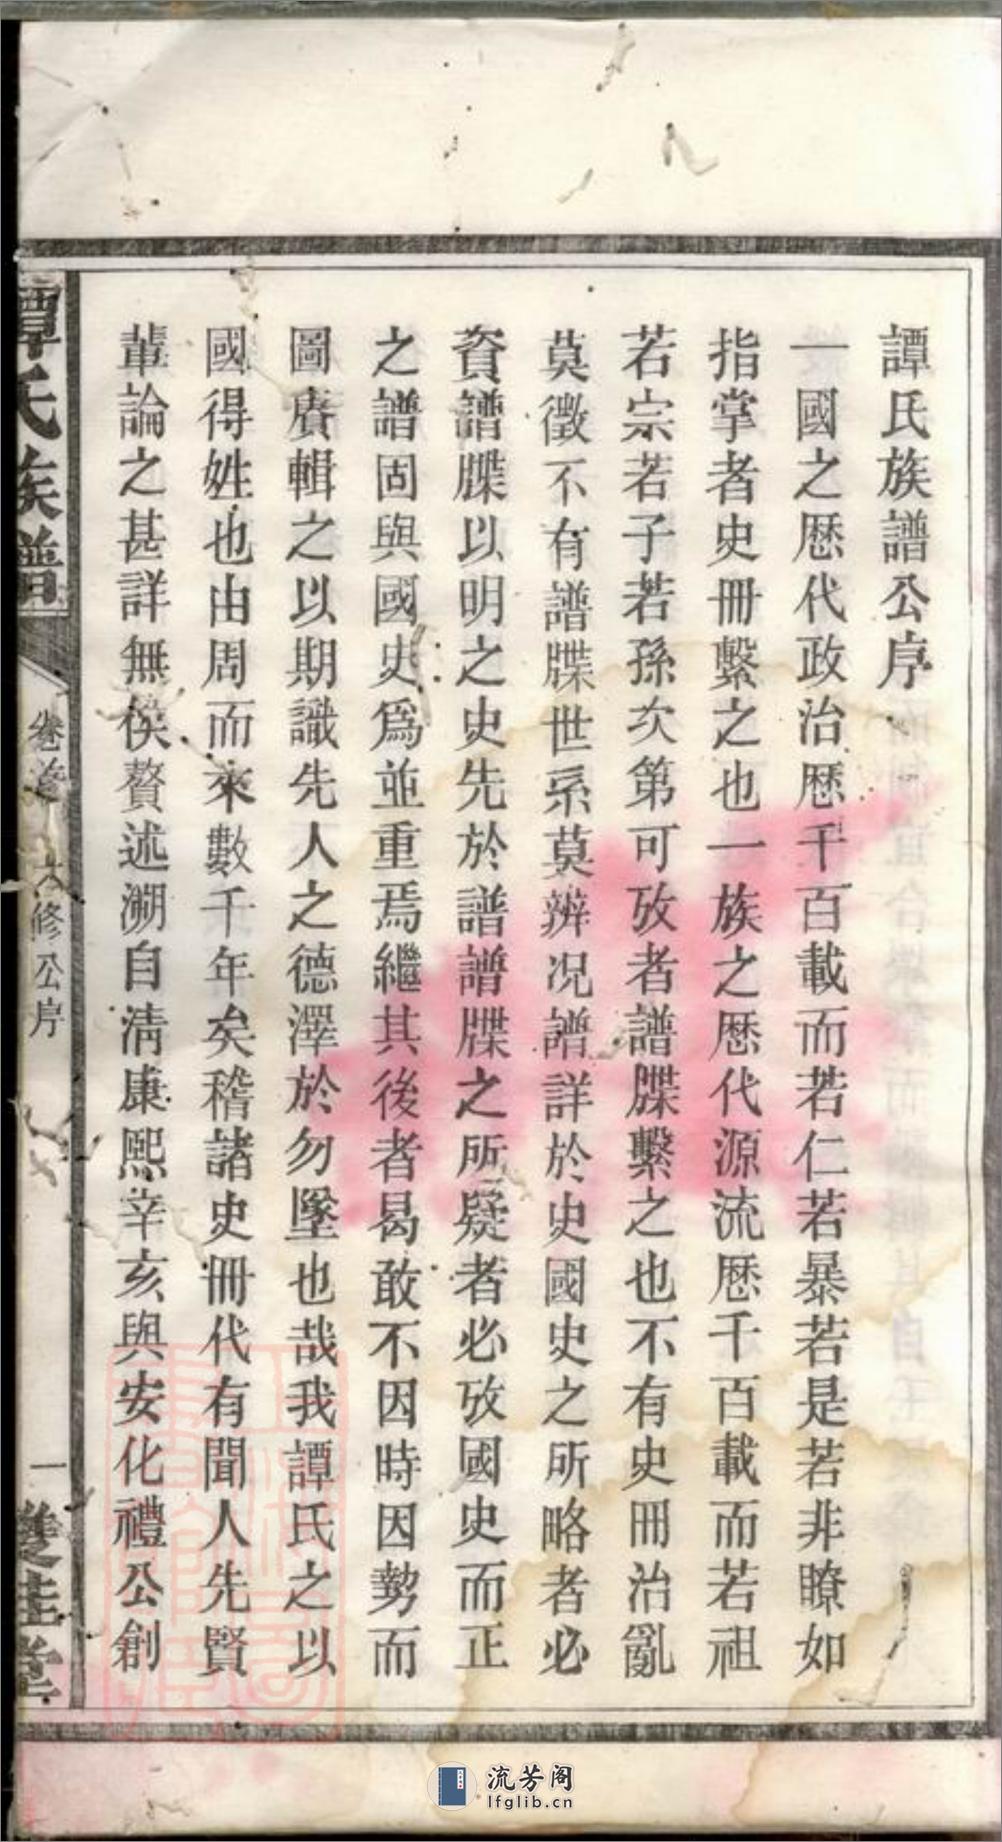 譚氏族譜公序
一國之歷代政治歷千百載而若仁若暴若是若非瞭如
指掌者史冊繫之也一族之歷代源流歷千百載而若祖
若宗若子若孫次第可攷者譜牒繫之也不有史冊治亂
莫徵不有譜牒世系莫辨況譜詳於史國史之所略者必
資譜牒以明之史先於譜譜牒之所疑者必攷國史而正
之譜固與國史爲並重焉繼其後者曷敢不因時因勢而
圖賡輯之以期識先人之德澤於勿墜也哉我譚氏之以
國得姓也由周而來數千年矣稽諸史冊代有聞人先賢
輩論之甚詳無俟贅述溯自淸康熙辛亥與安化禮公創
譚氏族譜
卷首
六修公序
一
雙桂堂
流芳阁
lfglib.cn